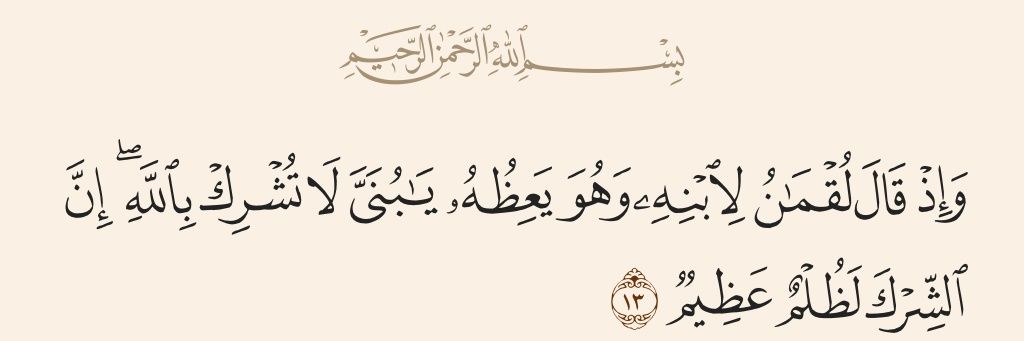 بِسْمِ ٱللَّهِ ٱلرَّحْمَٰنِ ٱلرَّحِيمِ
وَإِذْ قَالَ لُقْمَـٰنُ لِٱبْنِهِۦ وَهُوَ يَعِظُهُۥ يَـٰبُنَىَّ لَا تُشْرِكْ بِٱللَّهِ ۖ إِنَّ
ٱلشِّرْكَ لَظُلْمٌ عَظِيمٌ ١٣